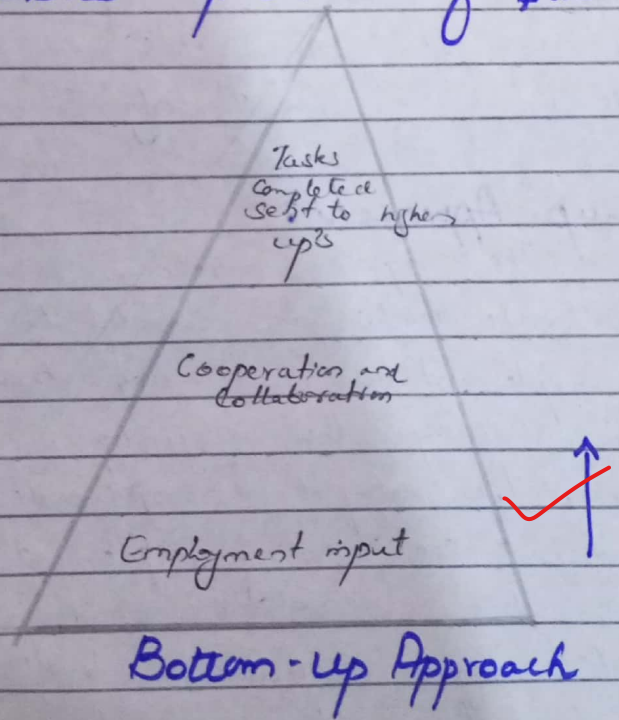 Tasks
Completed
sent to higher
up's
Cooperation and
Collaboration
Employment input
Bottom-up Approach